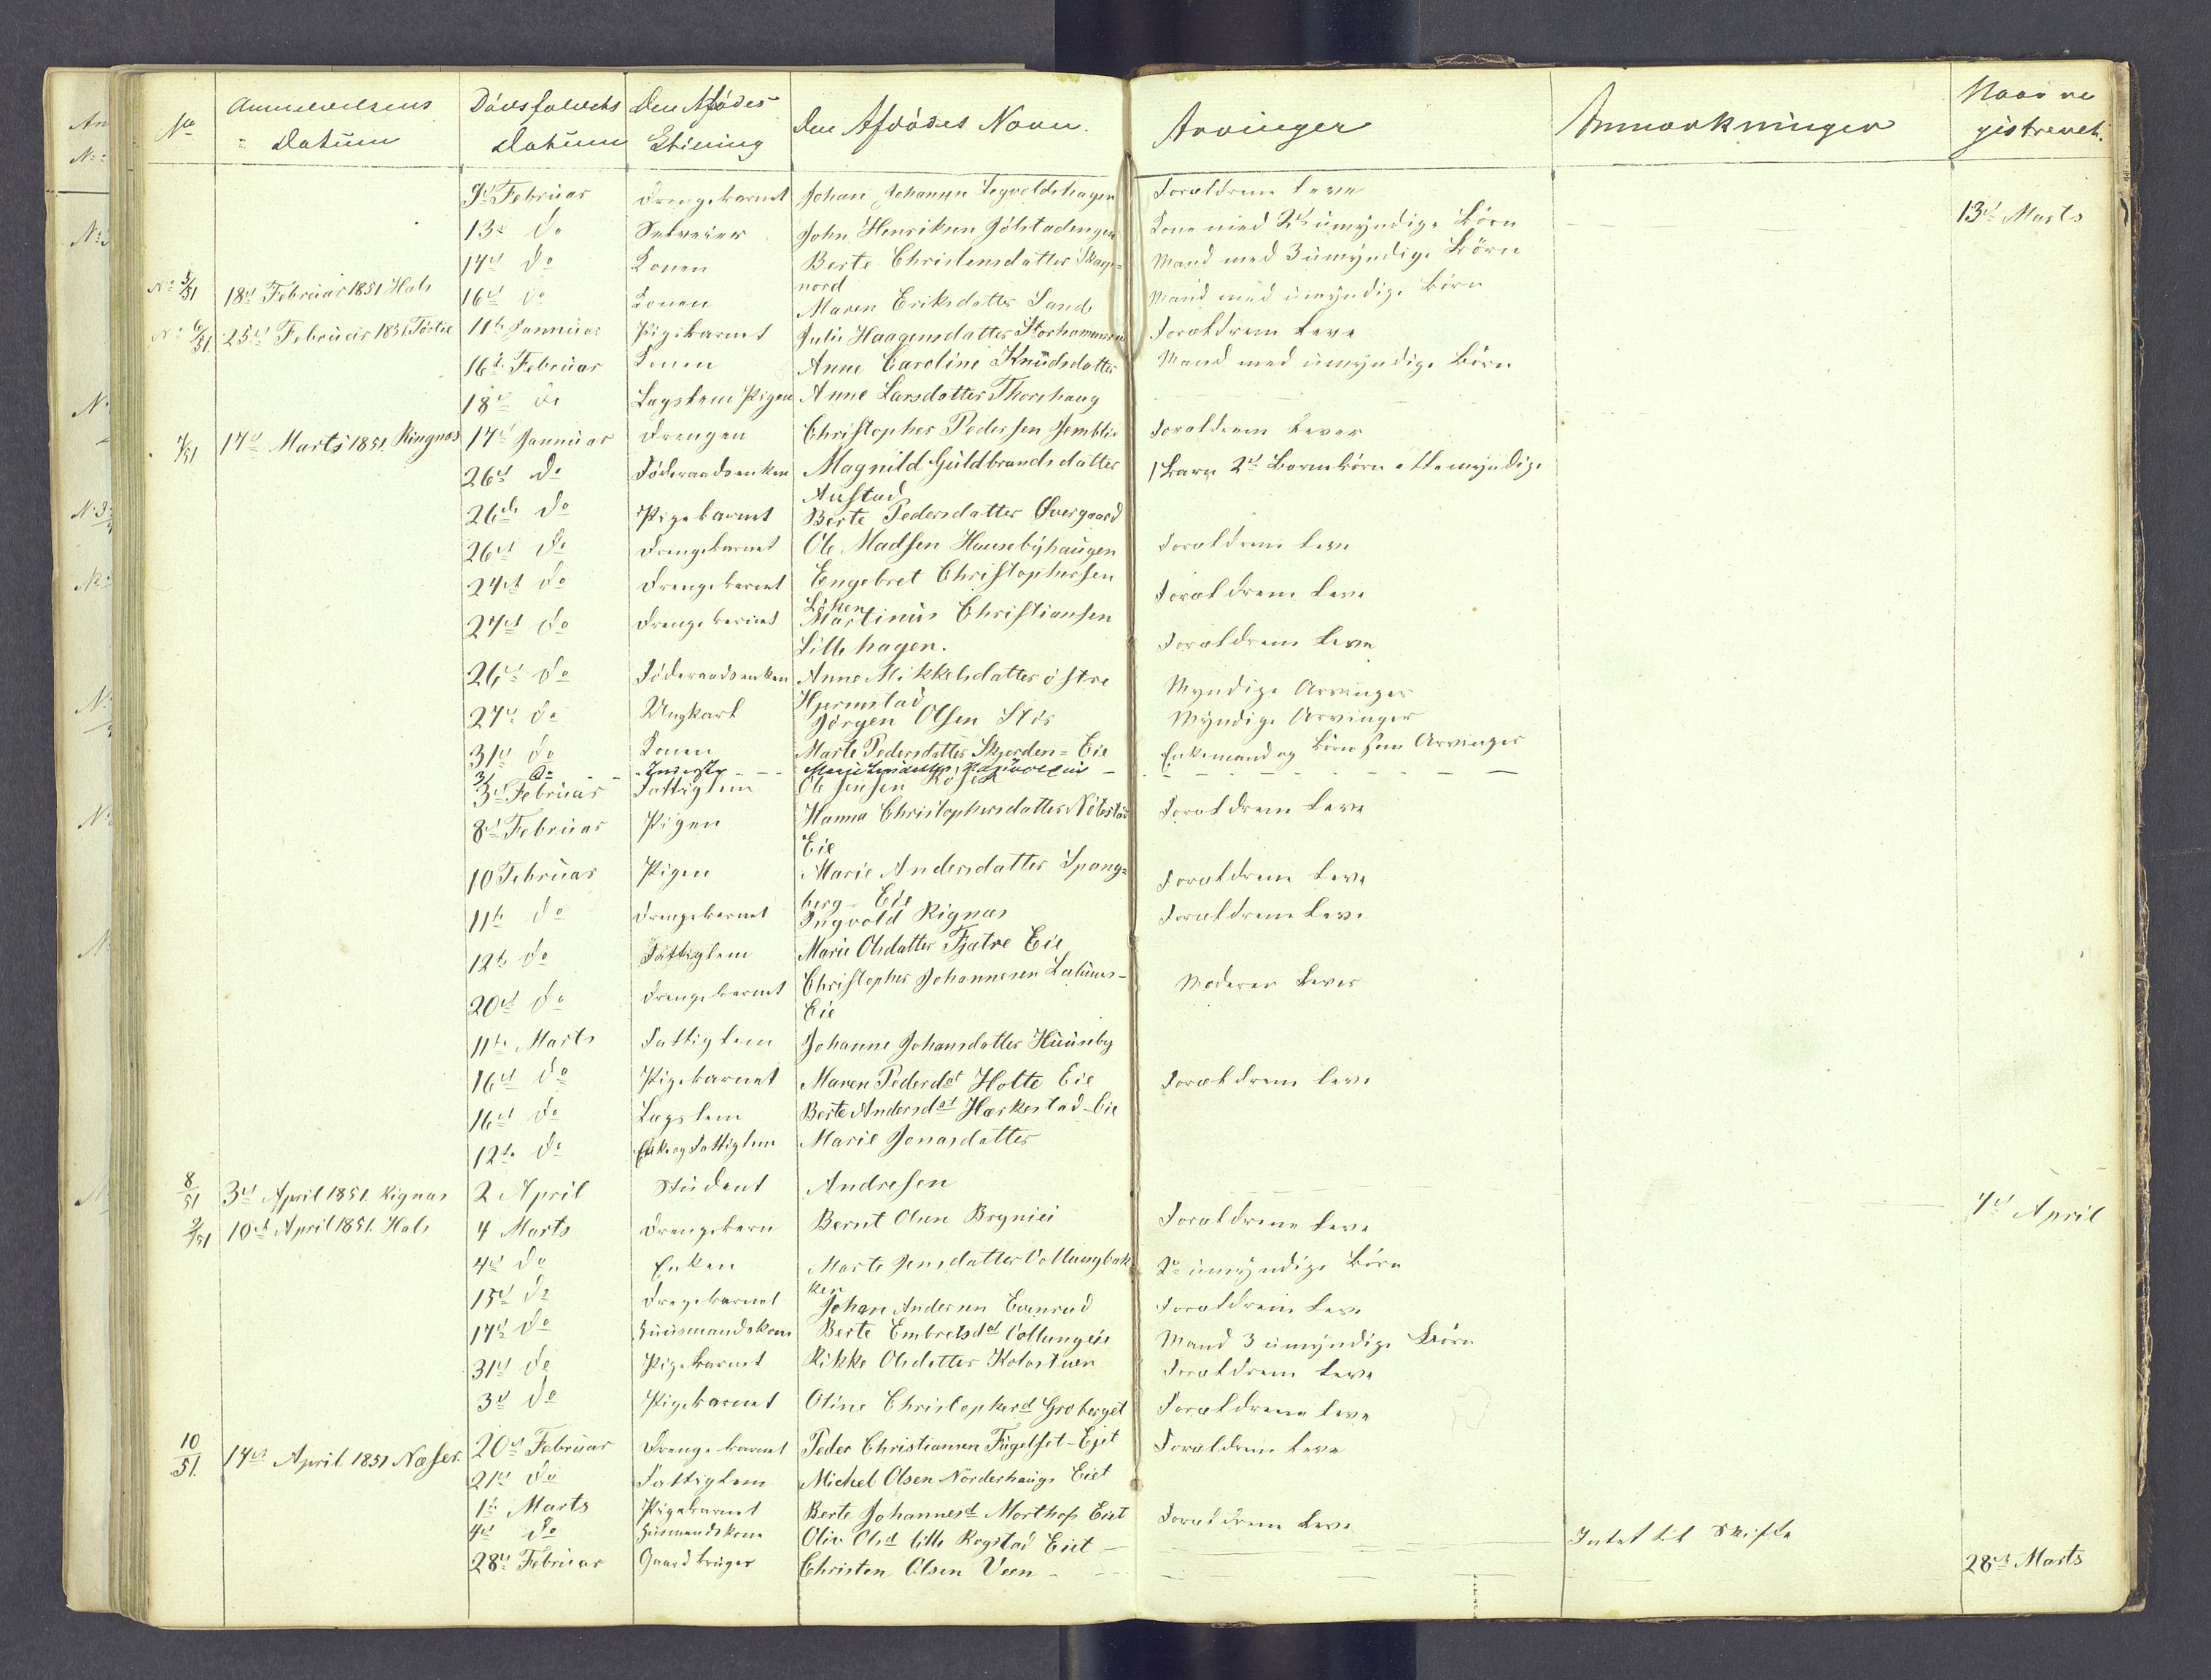 No Anmeldelsens Datum Dødsfaldets Datum Den Afdødes Stilling Den Afdødes Navn. Arvinger Anmærkninger Naar registreret.
9d Februar Drengebarnet Johan Johansen Forældrene Leve
13d do Selveier John Henriksen Kone med 2de umyndige Børn 13d Marts
14d do Konen Berte Christensdatter Skarpnord Mand med 3 umyndige Børn
No 5/51 18d Februar 1851 Hals 16d do Konen Maren Eriksdatter Sand Mand med umyndige Børn
No 6/51. 25d Februar 1851 11te Januar Pigebarnet Julie Haagensdatter Storhammeren Forældrene Leve
16de Februar Konen Anne Caroline Knudsdatter Mand med umyndige Børn
18d do Lægslem Pigen Anne Larsdatter Thorshaug
7/51 17d Marts 1851. Ringnæs 17d Januar Drengen Christopher Pedersen Jemblie Forældrene Lever
26d do Føderaadsenken Magnild Guldbrandsdatter Austad 1 Barn 2de Børnebørn alle myndige
26de do Pigebarnet Berte Pedersdatter Øvergaard
26d do Drengebarnet Ole Madsen Hausebyhaugen Forældrene Leve
24d do Drengebarnet Engebret Christophersen Løken Forældrene Leve
27d do Drengebarnet Martinus Christiansen Lillehagen. Forældrene Leve
26d do Føderaadsenken Anne Mikkelsdatter østre Hjermstad Myndige Arvinger
27d do Ungkarl Jørgen Olsen Myndige Arvinger
31d do Konen Marte Pedersdatter Skjerden=Eie Enkemand og Børn som Arvinger
31 do Inderste
3d Februar Fattiglem Ole Jensen
8d Februar Pigen Hanna Christophersdatter Eie Forældrene Leve
10 Februar Pigen Marie Andersdatter Spangberg-Eie Forældrene Leve
11te do Drengebarnet Ingvold Rignæs Forældrene Leve
12te do Fattiglem Marie Olsdatter Fjætre Eie
20d do Drengebarnet Christopher Johannesen Eie Moderen Lever
11te Marts Fattiglem Johanne Johansdatter Huuseby
16d do Pigebarnet Maren Pedersdat Holte Eie Forældrene Leve
16d do Lægslem Berte Andersdat Harkestad-Eie
12te do Enke og Fattiglem Marie Jonasdatter
8/51 3d April 1851. Rignæs 2 April Student Andresen 4d April
9/51 10d April 1851. Hals 4 Marts Drengebarn Bernt Olsen Forældrene Leve
4d do Enken Marte Jensdatter Collungbakken 2de umyndige Børn
15d do Drengebarnet Johan Andersen Evensrud Forældrene Leve
17d do Huusmandskone Berte Embretsdat Collungeie Mand 3 umyndige Børn
31d do Pigebarnet Rikke Olsdatter Kolostuen Forældrene Leve
3d do Pigebarnet Oline Christophersd Groberget Forældrene Leve
10/51. 14d April 1851 Næser. 20d Februar Drengebarnet Peder Christiansen Fugelset-Ejet Forældrene Leve
21d do Fattiglem Michel Olsen Nørderhaugs Eiet
1te Marts Pigebarnet Berte Johannesd Eiet Forældrene Leve
4d do Husmandskone Oliv Olsd lille Rogstad Eiet Intet til Skifte
28d Februar Gaardbruger Christen Olsen Veen 28d Marts